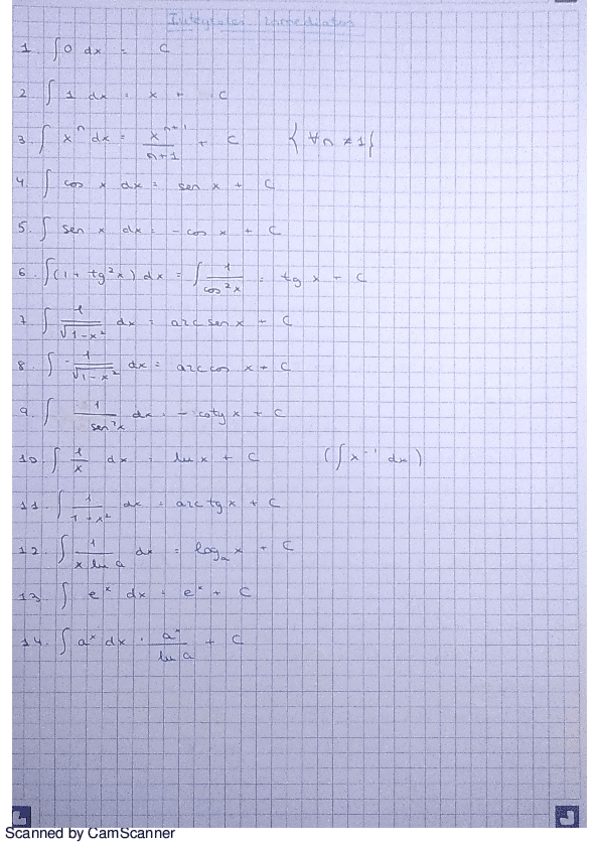 Integrales Inmediatas
1. ∫ 0 dx = C
2 ∫ 1 dx = x + C
3. ∫ x^n dx = x^(n+1)/(n+1) + C {∀n ≠ 1}
4. ∫ cos x dx = sen x + C
5. ∫ sen x dx = - cos x + C
6. ∫(1 + tg²x) dx = ∫ 1/cos²x = tg x + C
7 ∫ 1/√(1-x²) dx = arcsen x + C
8. ∫ -1/√(1-x²) dx = arccos x + C
9. ∫ 1/sen²x dx = - cotg x + C
10. ∫ 1/x dx = ln x + C (∫ x^-1 dx)
11. ∫ 1/(1+x²) dx = arctg x + C
12. ∫ 1/(x ln a) dx = log_a x + C
13 ∫ e^x dx = e^x + C
14. ∫ a^x dx = a^x/ln a + C
Scanned by CamScanner